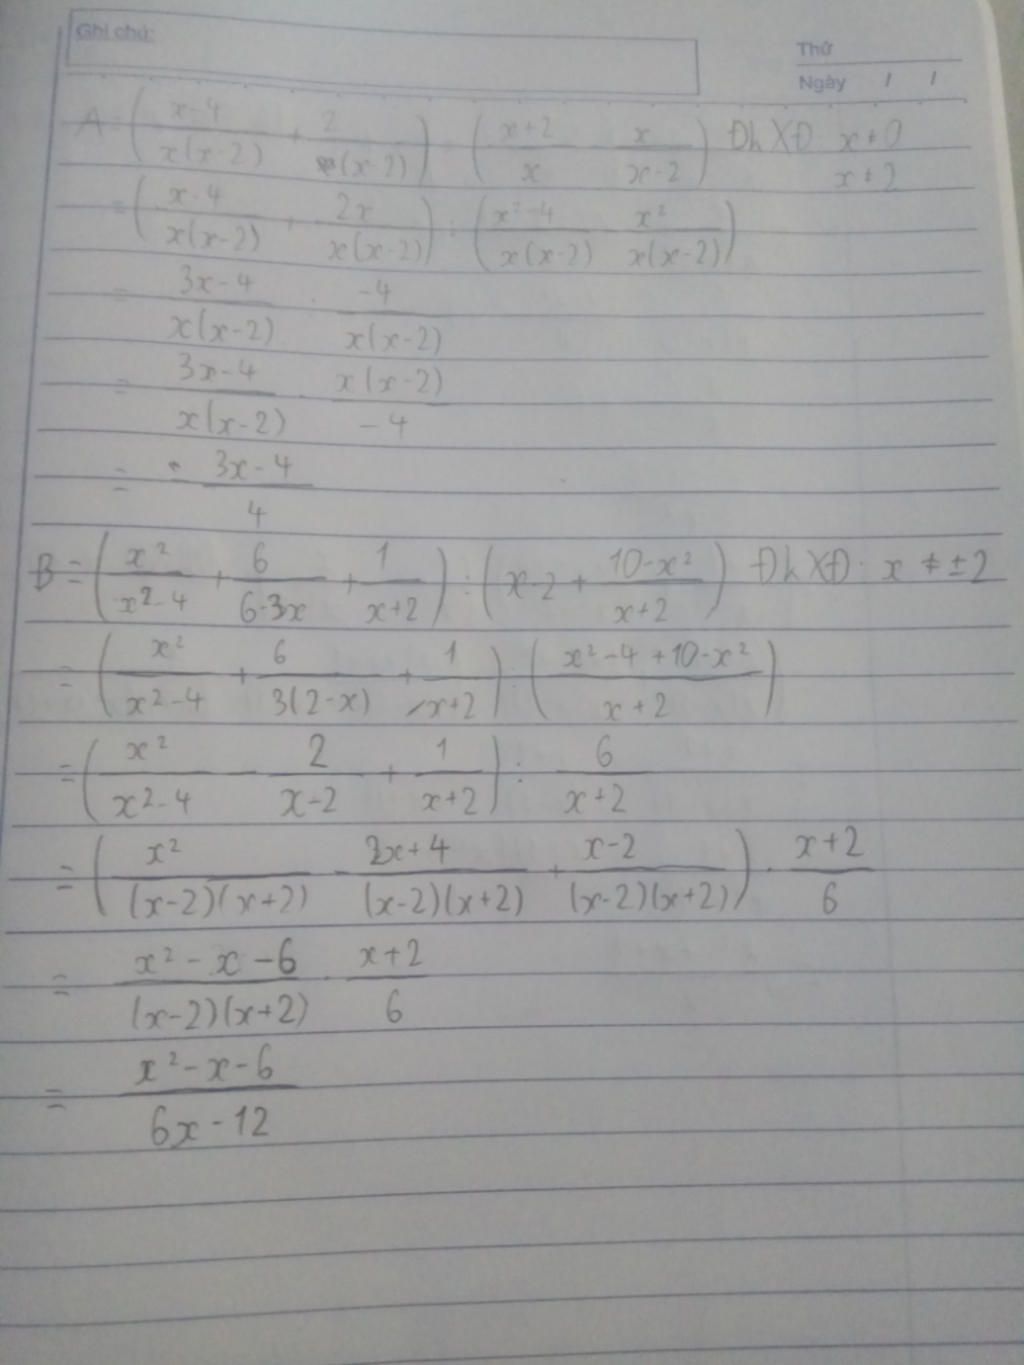 Ghi chú:
Thứ
Ngày / /
A = ( (x-4)/(x(x-2)) + 2/(x-2) ) : ( (x+2)/x - x/(x-2) ) ĐkXĐ: x ≠ 0
x ≠ 2
= ( (x-4)/(x(x-2)) + 2x/(x(x-2)) ) : ( (x²-4)/(x(x-2)) - x²/(x(x-2)) )
= (3x-4)/(x(x-2)) : (-4)/(x(x-2))
= (3x-4)/(x(x-2)) . (x(x-2))/(-4)
= - (3x-4)/4
B = ( x²/(x²-4) + 6/(6-3x) + 1/(x+2) ) : ( x-2 + (10-x²)/(x+2) ) ĐkXĐ: x ≠ ±2
= ( x²/(x²-4) + 6/(3(2-x)) + 1/(x+2) ) : ( (x²-4+10-x²)/(x+2) )
= ( x²/(x²-4) - 2/(x-2) + 1/(x+2) ) : 6/(x+2)
= ( x²/((x-2)(x+2)) - (2x+4)/((x-2)(x+2)) + (x-2)/((x-2)(x+2)) ) . (x+2)/6
= (x²-x-6)/((x-2)(x+2)) . (x+2)/6
= (x²-x-6)/(6x-12)